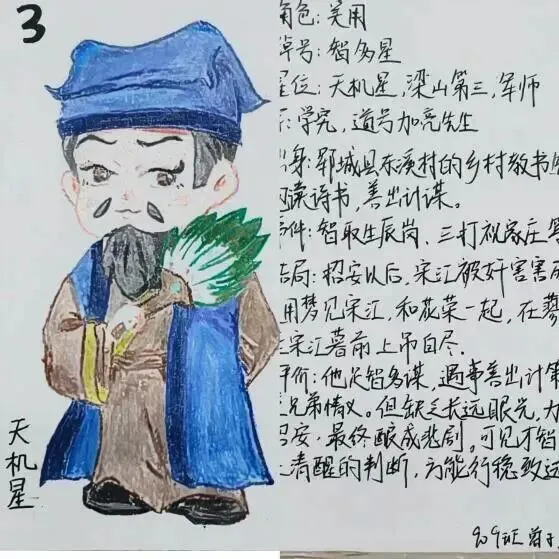 3
天机星
角色：吴用
绰号：智多星
星位：天机星，梁山第三，军师
：学究，道号加亮先生
身：郓城县东溪村的乡村教书
读诗书，善出计谋。
事件：智取生辰岗、三打祝家庄
结局：招安以后，宋江被奸害害
用梦见宋江，和花荣一起，在蓼
宋江墓前上吊自尽．
评价：他足智多谋，遇事善出计策
兄弟情义。但缺乏长远眼光，力
招安，最终酿成悲剧。可见才智
清醒的判断，方能行稳致远